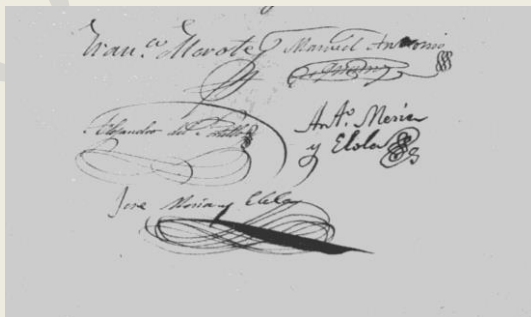 Fran.co Morote Manuel Antonio
Alejandro del
Ant.o Meria
y Elola
Jose Meria y Elola